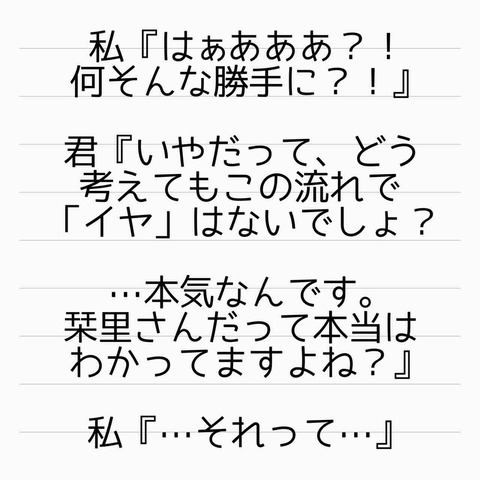 私『はぁあああ？！
何そんな勝手に？！』
君『いやだって、どう
考えてもこの流れで
「イヤ」はないでしょ？
…本気なんです。
栞里さんだって本当は
わかってますよね？』
私『…それって…』